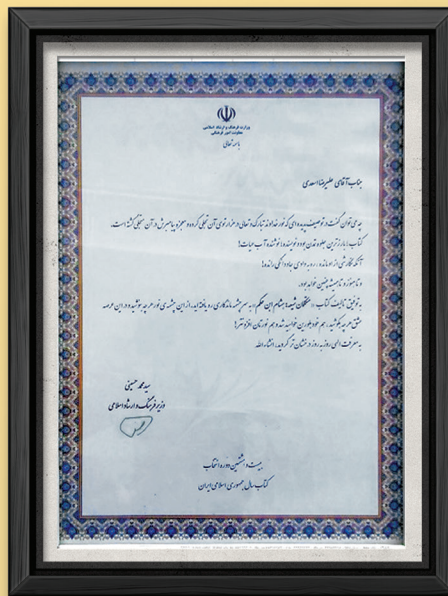 وزارت فرهنگ و ارشاد اسلامی
معاونت امور فرهنگی
باسمه تعالی
جناب آقای علیرضا اسعدی
چه می توان گفت در توصیف پدیده ای که نور خداوند تبارک و تعالی در هزار توی آن تجلی کرده و معجزه پیامبرش در آن متجلی گشته است.
کتاب، بارزترین جلوه تمدن بوده و نویسنده، نوشنده آب حیات!
آنکه نگارشی از او مانده، ره به وادی جاودانگی رانده!
و تا هنوز و تا همیشه چنین خواهد بود.
به توفیق تألیف کتاب هشام ابن حکم به سرچشمه ماندگاری ره یافته اید. از این چشمه ی نور هر چه بنوشید و در این عرصه
عشق هر چه بکوشید، هم خود بلورین خواهید شد و هم نورتان افزونتر!
به معرفت الهی روز به روز درخشان تر گردید. انشاء الله
سید محمد حسینی
وزیر فرهنگ و ارشاد اسلامی
بیست و هشتمین دوره انتخاب
کتاب سال جمهوری اسلامی ایران